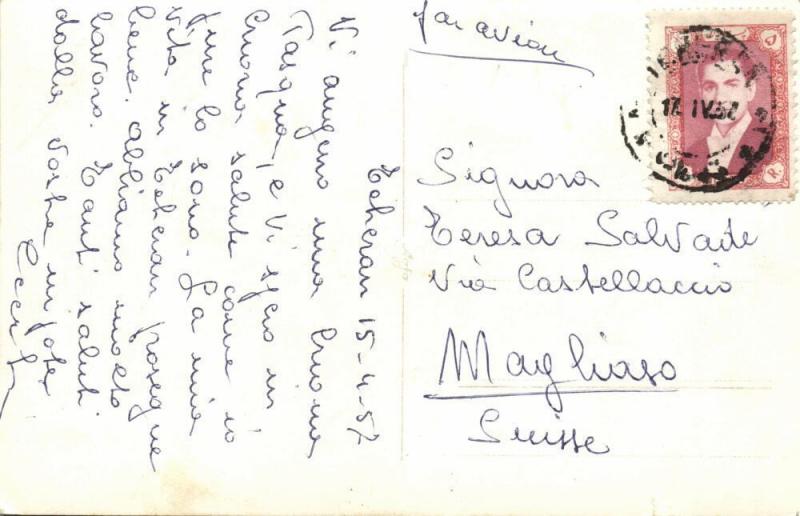 Teheran 15-4-57
Vi augero una buona
Pasqua, e vi spero in
buona salute come io
pure lo sono. La mia
vita in Teheran prosegue
bene. abbiamo molto
lavoro. Tanti saluti
dalla vostra nipote
par avion
17 IV.57
Signora
Teresa Salvade
Via Castellaccio
Magliaso
Suisse